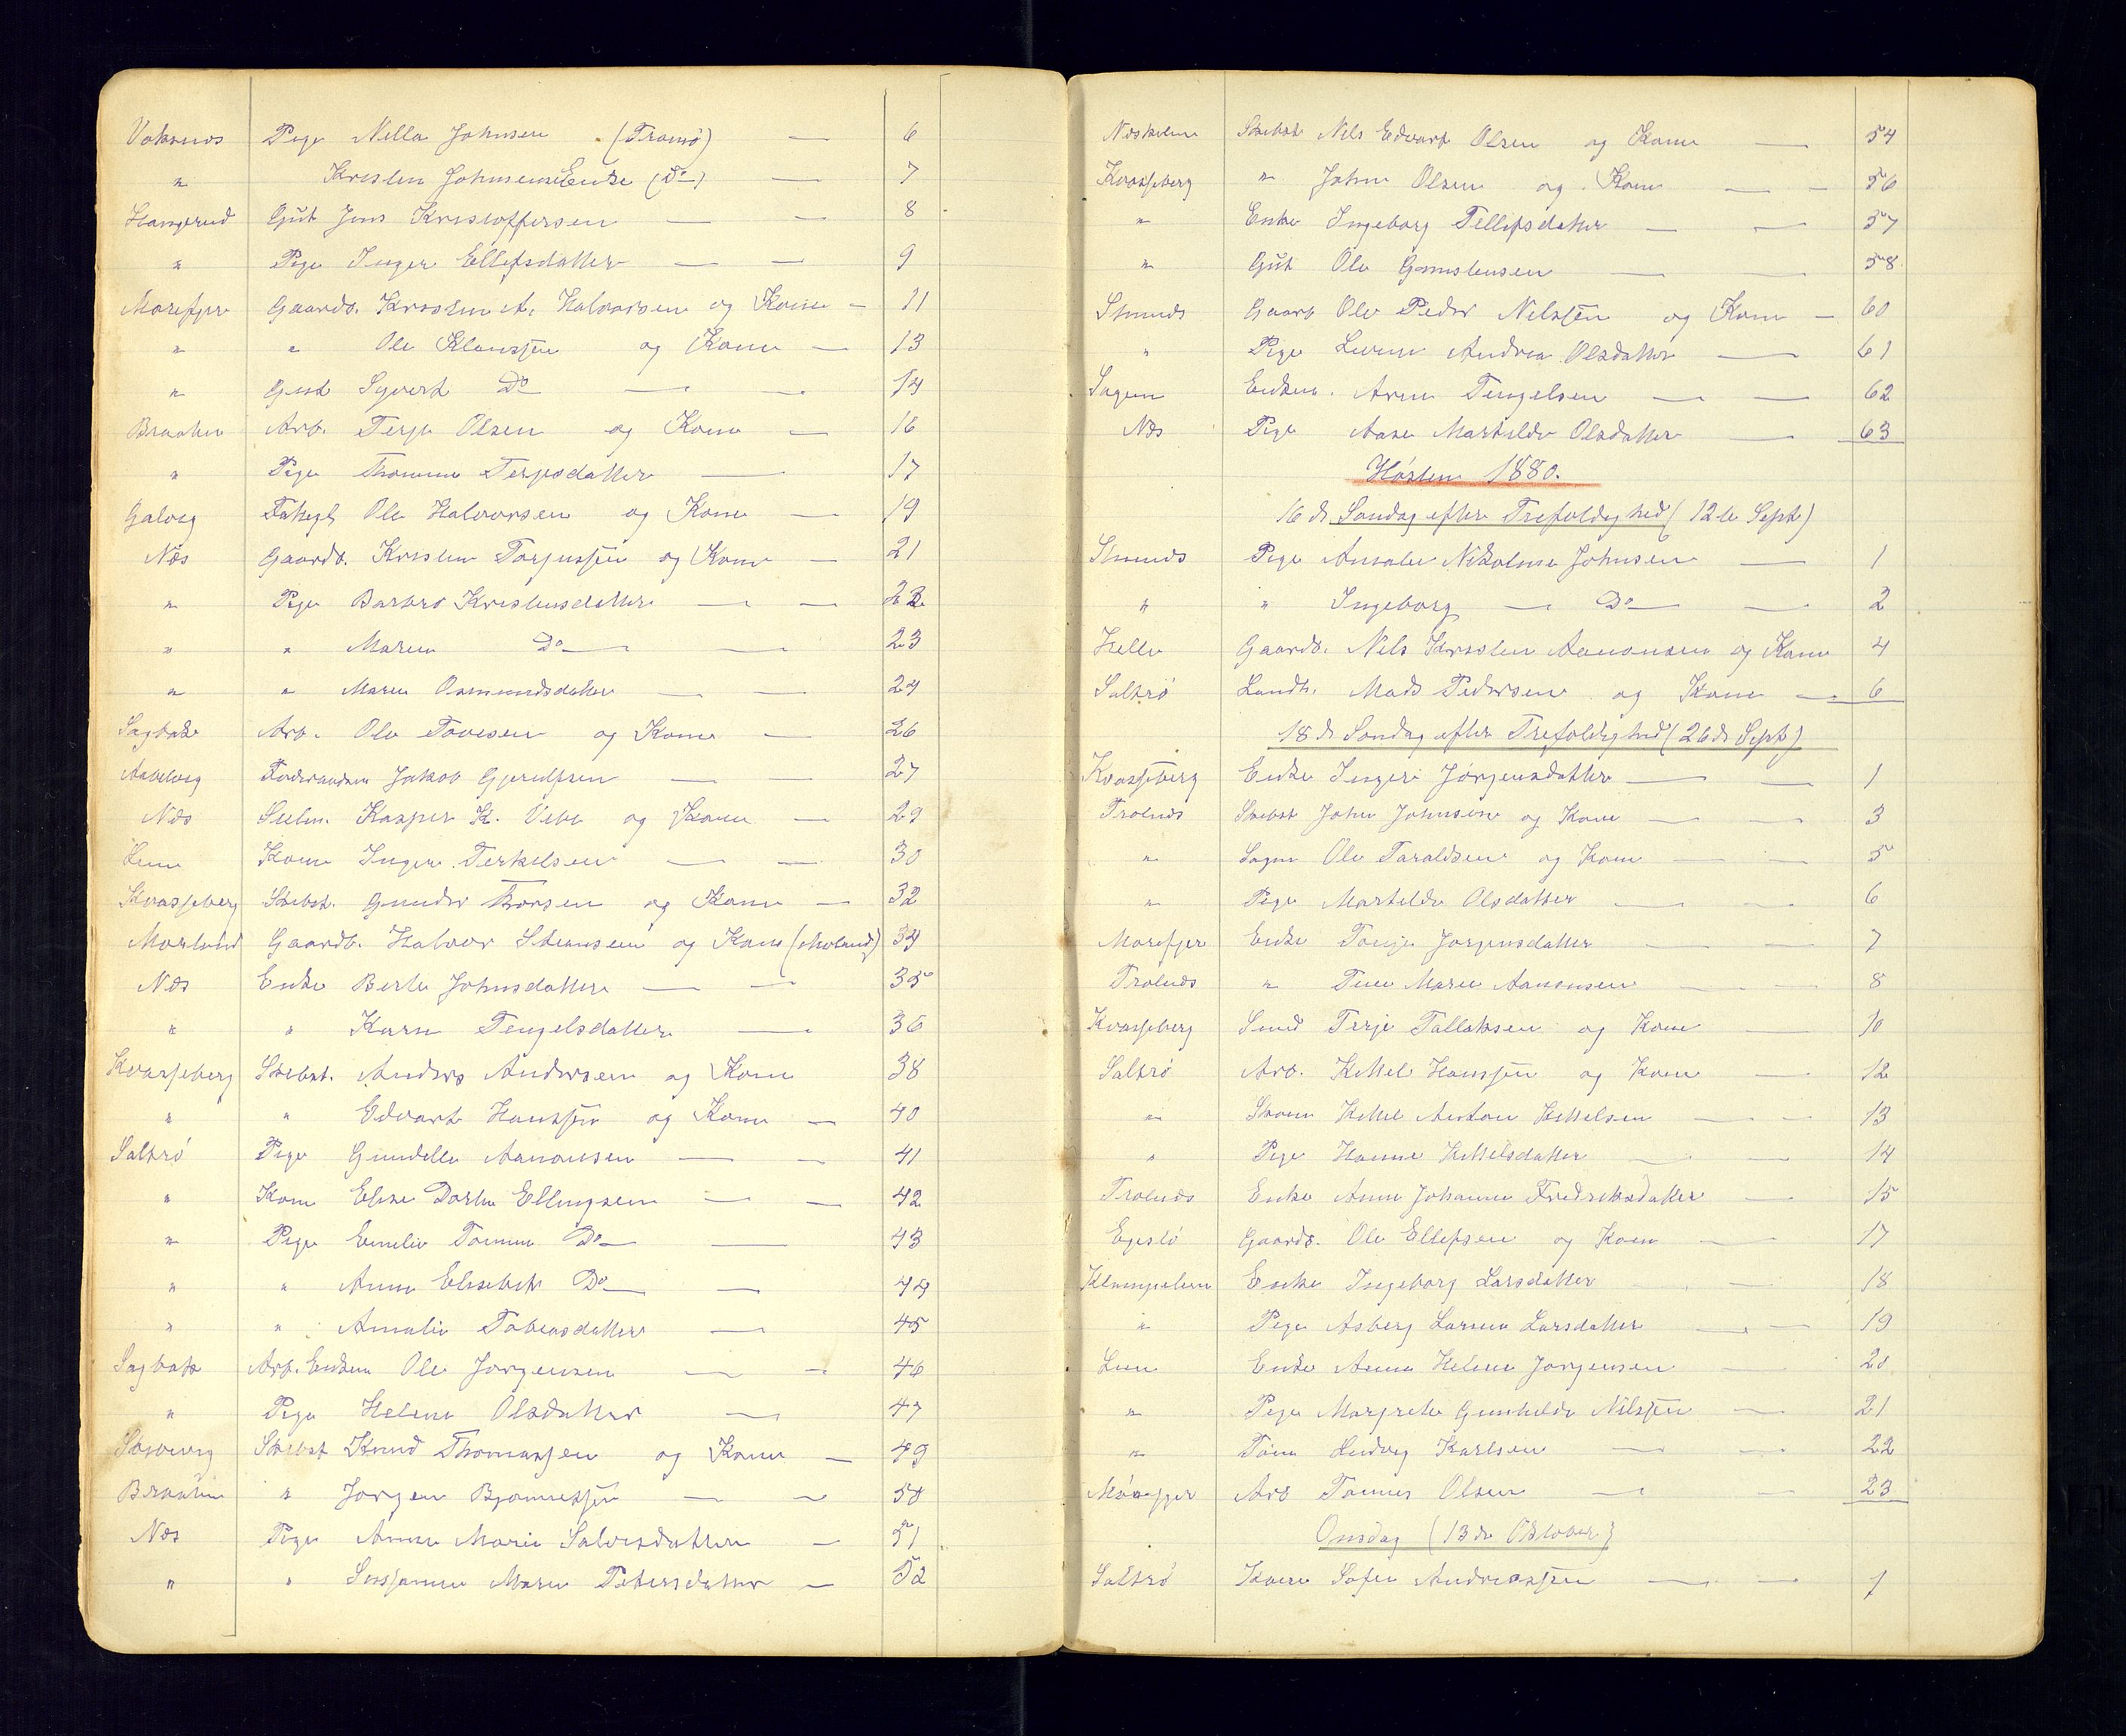 Vaksnes Pige Nella Johnsen (Tromø) — 6
" Kristen Johnsens Enke (Do) — 7
Haugerud Gut Jens Kristoffersen — — 8
" Pige Inger Ellefsdatter — — 9
Morefjer Gaardb. Kristen A. Halvorsen og Kone — 11
" " Ole Klausen og Kone — 13
" Gut Syvert Do — — 14
Braaten Arb. Terje Olsen og Kone — 16
" Pige Thomine Terjesdatter — 17
Galveg Ole Halvorsen og Kone — 19
Næs Gaardb. Kristen Torjussen og Kone — 21
" Pige Barbro Kristensdatter — — 22
" " Maren Do — — 23
" " Maren Osmundsdatter — — 24
Sagbak Arb. Ole Tovesen og Kone — 26
Jakob Gjerulfsen — — 27
Næs Kasper K. Vebe og Kone — 29
Lunn Kone Inger Terkelsen — — 30
Kvasseberg Skibst. Gunder Thorsen og Kone — 32
Morlund Gaardb. Halvor Steensen og Kone (Moland) 34
Næs Enke Berte Johnsdatter — — 35
" " Karen Tengelsdatter — 36
Kvasseberg Skibst. Anders Andersen og Kone 38
" " Edvart Hanssen og Kone — 40
Saltrø Pige Gundelle Aanonsen — — 41
" Kone Elise Dorte Ellingsen — — 42
" Pige Emilie Tomine Do — — 43
" " Anne Elisebet Do — — 44
" " Amalie Tobiasdatter — 45
Sagbak Arb. Enkem Ole Jørgensen — — 46
" Pige Helene Olsdatter — 47
Skibst Knud Thomassen og Kone — 49
Braaten " Jørgen Bjørnessen — — 50
Næs Pige Anne Marie Salvesdatter — 51
" " Sussanne Maren Petersdatter — 52
Næsholmen Skibst Nils Edvart Olsen og Kone — 54
Kvasseberg " John Olsen og Kone — — 56
" Enke Ingeborg Tellefsdatter — — 57
" Gut Ole Gunstensen — — 58
Stuenes Gaardb Ole Peder Nilssen og Kone — 60
" Pige Lovise Andrea Olsdatter — 61
Sagen Enkem. Arne Tengelsen — — 62
Næs Pige Aase Martilde Olsdatter — 63
Høsten 1880.
16de Søndag efter Trefoldighed (12te Sept)
Stuenes Pige Amalie Nikoline Johnsen — 1
" " Ingeborg — Do — — 2
Helle Gaardb. Nils Kristen Aanonsen og Kone 4
Saltrø Landh. Mads Pedersen og Kone — 6
18de Søndag efter Trefoldighed (26de Sept)
Kvasseberg Enke Inger Jørgensdatter — — 1
Trolnes Skibst John Johnsen og Kone — — 3
" Ole Taraldsen og Kone — — 5
" Pige Martilde Olsdatter — — 6
Morefjer Enke Tonje Jørgensdatter — — 7
Trolnes " Tine Marie Aanonsen — — 8
Kvasseberg Smed Terje Tallaksen og Kone — 10
Saltrø Arb. Kittel Hanssen og Kone — 12
" Kittel Anton Kittelsen — — 13
" Pige Hanne Kittelsdatter — — 14
Trolnes Enke Anne Johanne Fredriksdatter — 15
Egeslø Gaardb. Ole Ellefsen og Kone — — 17
Klampeleen Enke Ingeborg Larsdatter — — 18
" Pige Asberg Larsine Larsdatter — — 19
Lun Enke Anna Helene Jørgensen — 20
" Pige Margrete Gunhilde Nilssen — 21
" Ludvig Karlsen — — 22
Morefjer Arb Tønnes Olsen — — 23
Onsdag (13de Oktober)
Saltrø Kone Sofie Andreassen — — 1